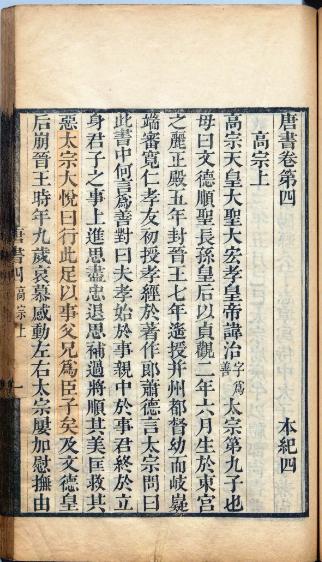 唐書卷第四 本紀四
高宗上
高宗天皇大聖大宏孝皇帝諱治字爲善太宗第九子也
母曰文德順聖長孫皇后以貞觀二年六月生於東宮
之麗正殿五年封晉王七年遙授并州都督幼而岐嶷
端審寬仁孝友初授孝經於著作郎蕭德言太宗問曰
此書中何言爲善對曰夫孝始於事親中於事君終於立
身君子之事上進思盡忠退思補過將順其美匡救其
惡太宗大悅曰行此足以事父兄爲臣子矣及文德皇
后崩晉王時年九歲哀慕感動左右太宗屢加慰撫由
唐書四 高宗上 一